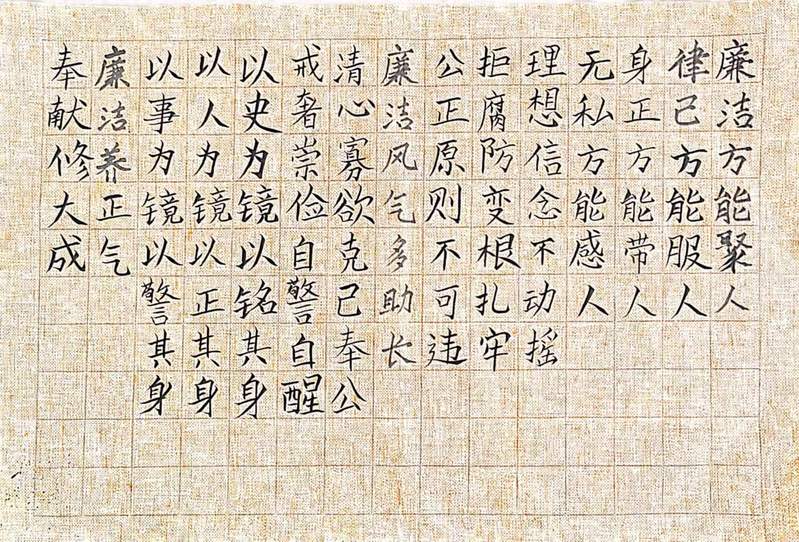 廉洁方能聚人
律己方能服人
身正方能带人
无私方能感人
理想信念不动摇
拒腐防变根扎牢
公正原则不可违
廉洁风气多助长
清心寡欲克己奉公
戒奢崇俭自警自醒
以史为镜以铭其身
以人为镜以正其身
以事为镜以警其身
廉洁养正气
奉献修大成